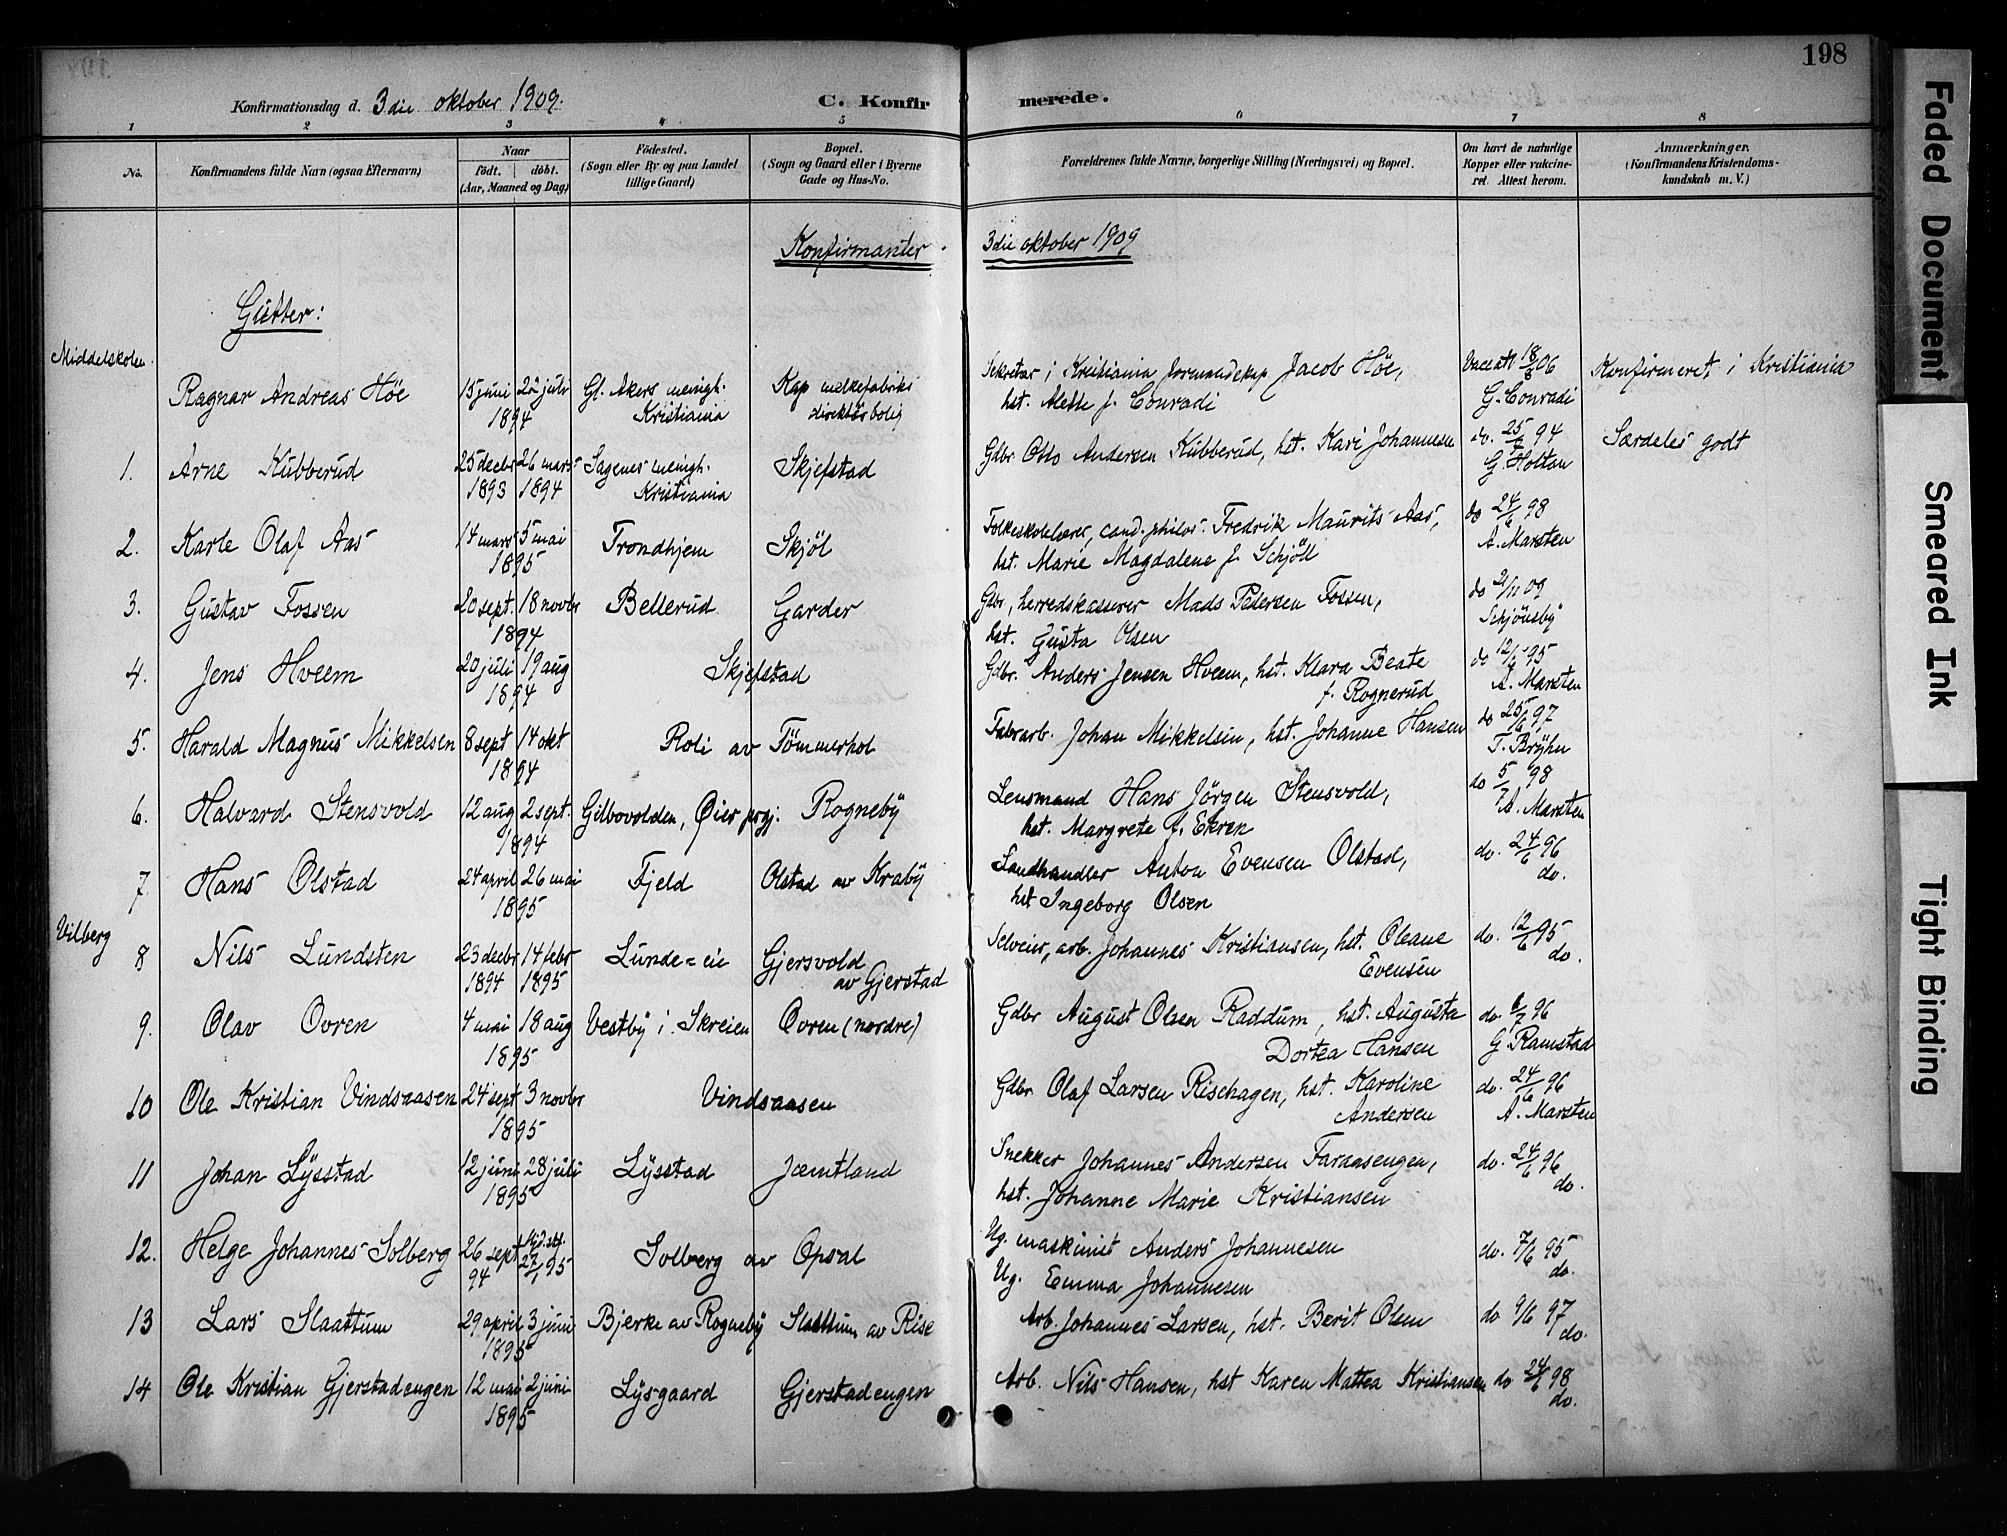 198
Konfirmationsdag d. 3die oktober 1909. C. Konfirmerede.
1 2 3 4 5 6 7 8
No. Konfirmandens fulde Navn (ogsaa Efternavn) Naar født. døbt. (Aar, Maaned og Dag) Födested. (Sogn eller By og paa Landet tillige Gaard) Bopæl. (Sogn og Gaard eller i Byerne Gade og Hus-No. Forældrenes fulde Navne, borgerlige Stilling (Næringsvei) og Bopæl. Om havt de naturlige Kopper eller vakcineret. Attest herom. Anmærkninger. (Konfirmandens Kristendomskundskab m. V.)
Konfirmanter 3die oktober 1909
Gutter:
Middelskolen
Ragnar Andreas Höe 15 juni 22 juli Gl. Akers menigh. Kap melkefabriks Sekretær i Kristiania formandskap Jacob Höe, Vacc att 18/8 06 Konfirmeret i Kristiania
1894 Kristiania direktörbolig hst. Alette f. Conradi G. Conradi
1. Arne Kubberud 25 decbr 26 mars Sagenes menigh. Skjefstad Gdbr Otto Andersen Kubberud, hst. Kari Johannesen do. 25/7 94 Særdeles godt
1893 1894 Kristiania G. Holtan
2. Karle Olaf Aas 14 mars 5 mai Trondhjem Skjöl Folkeskolelærer, cand. philos. Fredrik Maurits Aas, do 24/6 98
1895 hst. Marie Magdalene f. Schjöll A. Marsten
3. Gustav Fossen 20 sept. 18 novbr Bellerud Garder Gdbr, herredskasserer Mads Pedersen Fossen, do 2/11 09
1894 hst. Gusta Olsen Schjönsby
4. Jens Hveem 20 juli 19 aug Skjefstad Gdbr. Anders Jensen Hveem, hst. Klara Beate do 12/6 95
1894 f. Rognerud A. Marsten
5. Harald Magnus Mikkelsen 8 sept 14 okt Roli av Tömmerhol Fabrarb. Johan Mikkelsen, hst. Johanne Hansen do 25/6 97
1894 T. Bryhn
6. Halvard Stensvold 12 aug 2 sept. Gilbovolden, Øier prgj. Rogneby Lensmand Hans Jörgen Stensvold, do 5/7 98
1894 hst. Margrete f. Ekren A. Marsten
7 Hans Olstad 24 april 26 mai Fjeld Olstad av Kraby Landhandler Anton Evensen Olstad, do. 24/6 96
1895 hst Ingeborg Olsen do.
Vilberg
8 Nils Lundsten 23 decbr 14 febr Lunde-eie Gjersvold Selveier, arb. Johannes Kristiansen, hst. Oleane do. 12/6 95
1894 1895 av Gjerstad Evensen do.
9. Olav Ovren 4 mai 18 aug Vestby i Skreien Ovren (nordre) Gdbr August Olsen Raddum, hst. Augusta do. 6/7 96
1895 Dortea Hansen G. Ramstad
10 Ole Kristian Vindsaasen 24 sept 3 novbr Vindsaasen Gdbr Olaf Larsen Rischagen, hst. Karoline do. 24/6 96
1895 Andersen A. Marsten
11 Johan Lysstad 12 juni 28 juli Lysstad Jæmtland Snekker Johannes Andersen Faraasengen, do. 24/6 96
1895 hst. Johanne Marie Kristiansen do.
12. Helge Johannes Solberg 26 sept 27/1 95 Solberg av Opsal Ug. maskinist Anders Johannesen do. 7/6 95
94 Ug. Emma Johannesen do.
13 Lars Slaattum 29 april 3 juni Bjerke av Rogneby Slaattum av Rise Arb. Johannes Larsen, hst. Berit Olsen do 9/6 97
1895 do.
14 Ole Kristian Gjerstadengen 12 mai 2 juni Lysgaard Gjerstadengen Arb. Nils Hansen, hst Karen Mattea Kristiansen do 24/6 98
1895 do.
Faded Document
Smeared Ink
Tight Binding